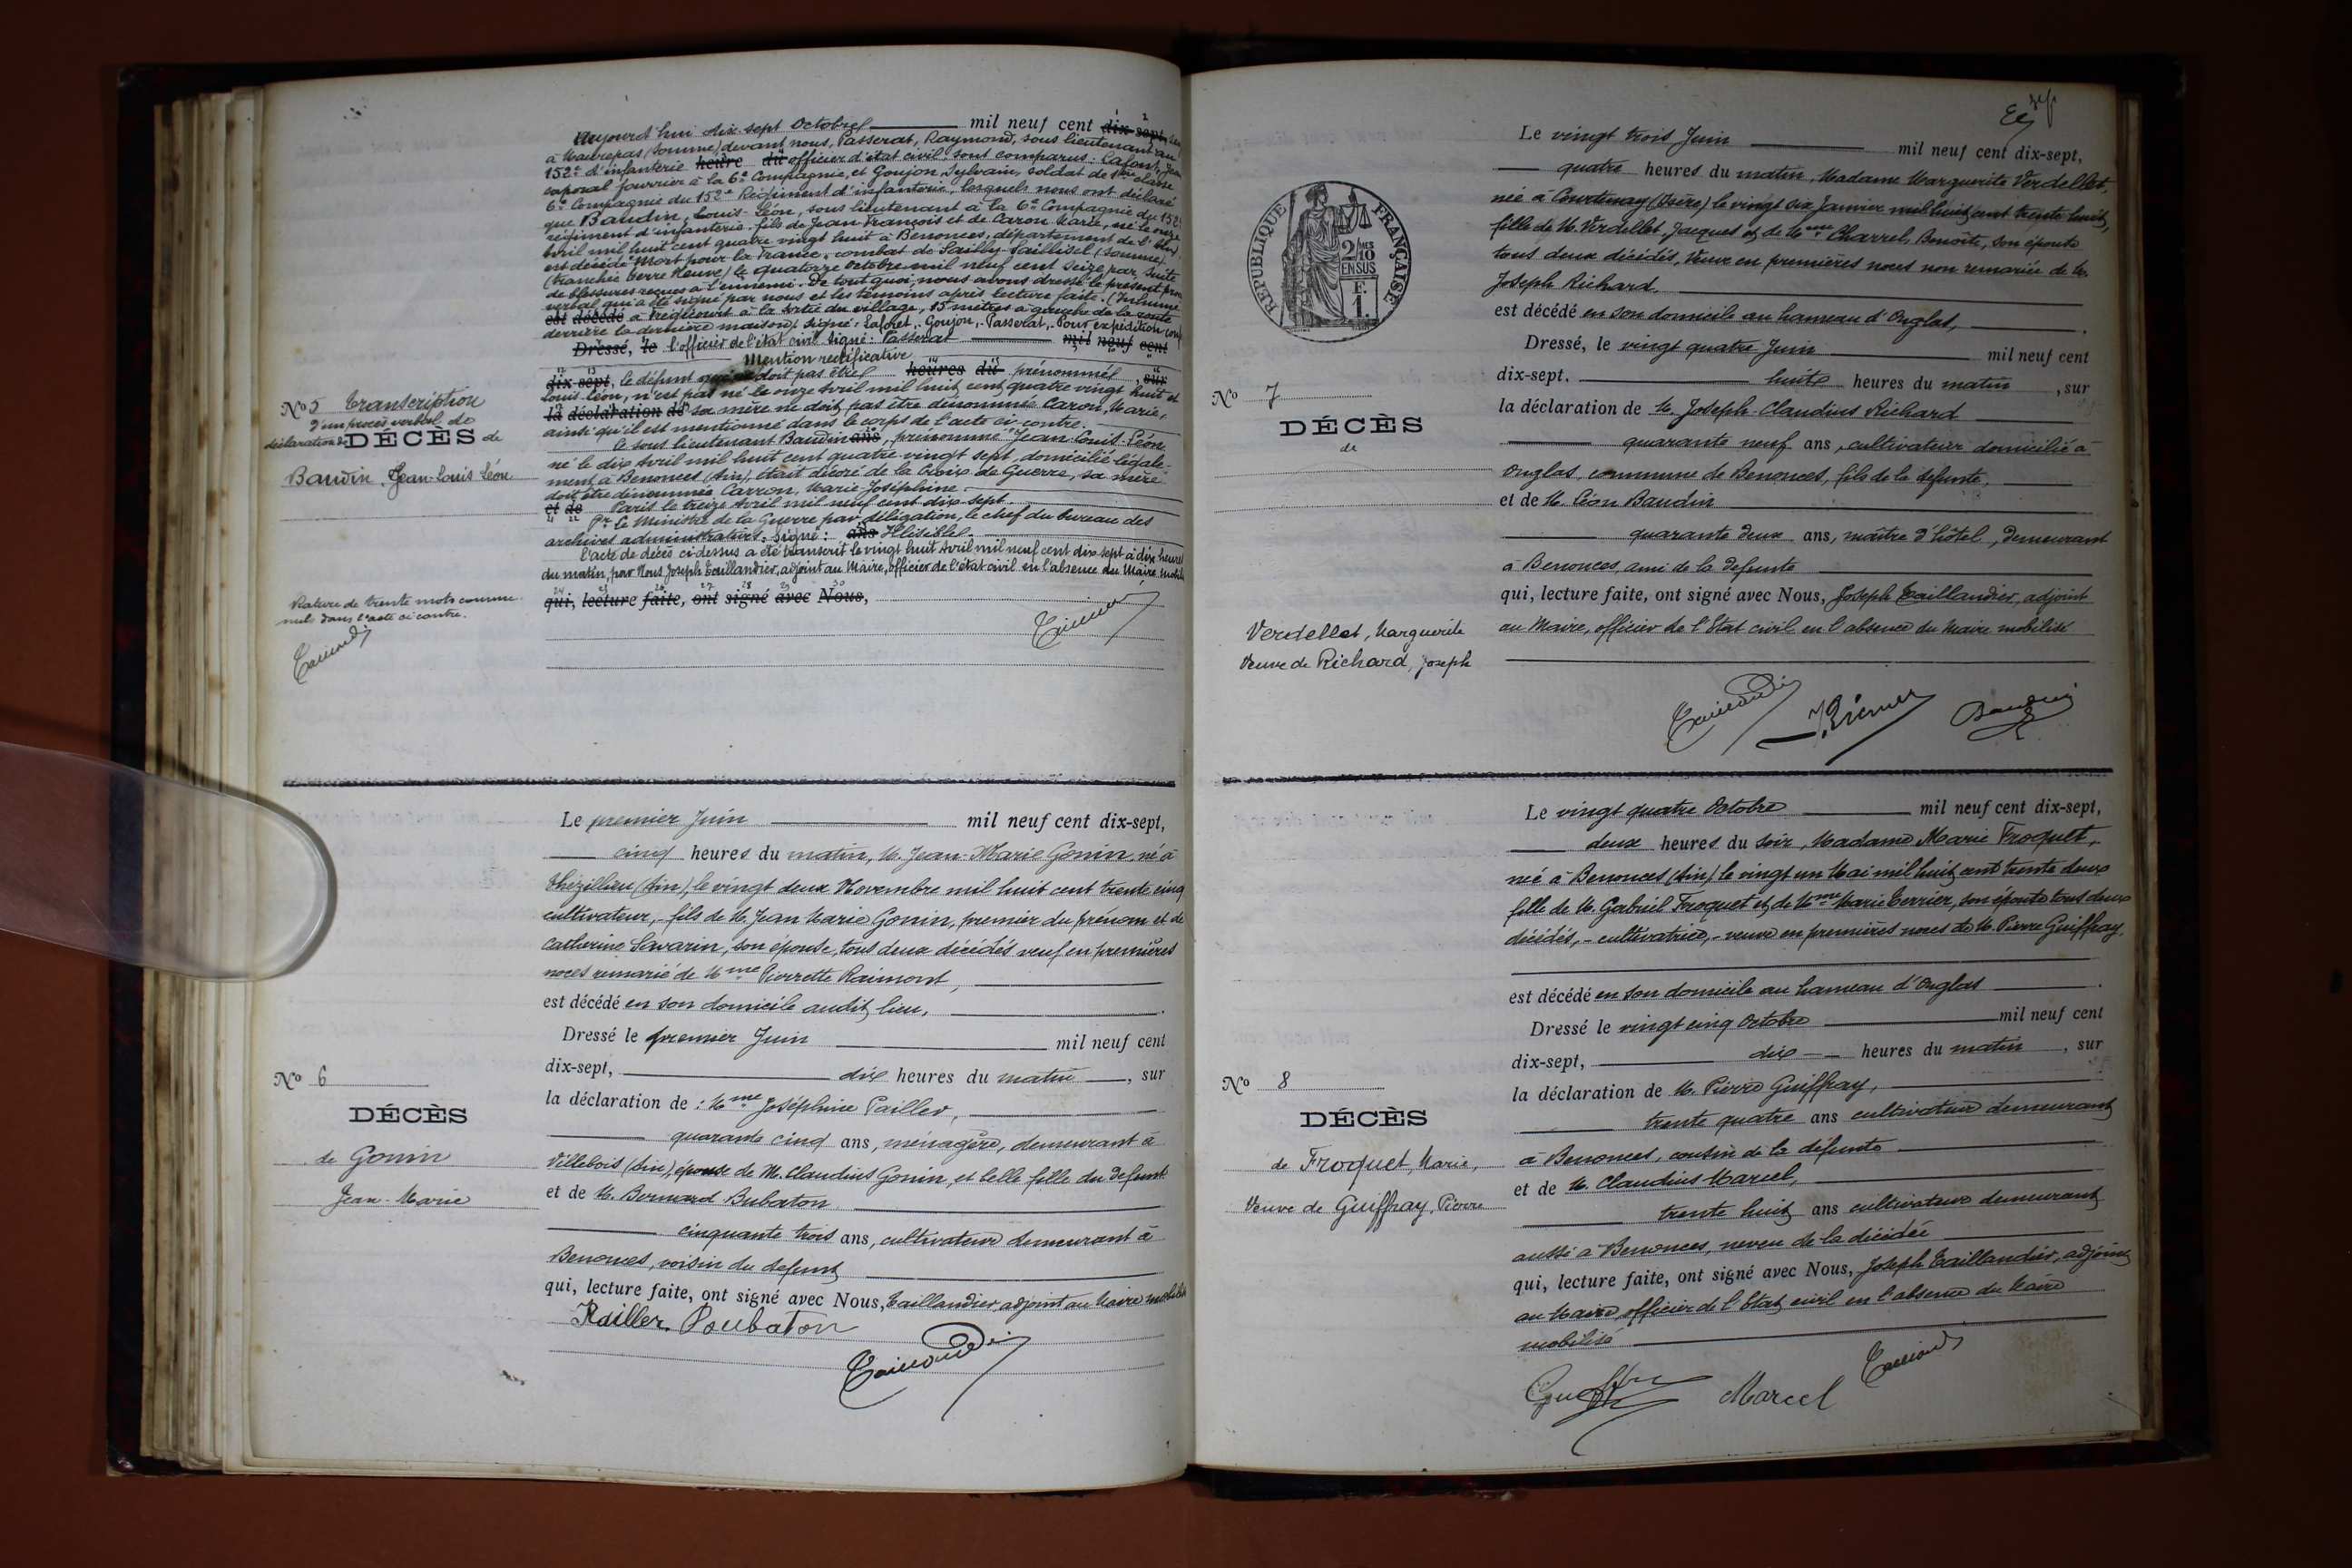 Aujourd'hui dix-sept Octobre mil neuf cent dix-sept,
à Maurepas (Somme), devant nous, Passerat, Raymond, sous lieutenant au
152e d'infanterie heure du officier d'état civil, sont comparus: Lafont, Jean
caporal fourrier à la 6e Compagnie, et Goujon, Sylvain, soldat de classe
6e Compagnie du 152e Régiment d'infanterie, lesquels nous ont déclaré
que Baudin, Louis-Léon, sous lieutenant à la 6e Compagnie du 152e
régiment d'infanterie, fils de Jean François et de Caron Marie, né le onze
Avril mil huit cent quatre vingt huit à Benonces, département de l'Ain,
est décédé "Mort pour la France", combat de Sailly-Saillisel (Somme)
(tranchée Terre Neuve) le quatorze Octobre mil neuf cent seize par suite
de blessures reçues à l'ennemi. De tout quoi, nous avons dressé le présent procès
verbal qui a été signé par nous et les témoins après lecture faite. (Inhumé
est décédé à Frégicourt à la sortie du village, 15 mètres à gauche de la route
derrière la dernière maison) signé: Goujon, Passerat, Pour expédition conf
Dressé, le l'officier de l'état civil signé: Passerat mil neuf cent
Mention rectificative
dix-sept, le défunt ne doit pas être heures du prénommé, sur
Louis Léon, n'est pas né le onze Avril mil huit cent quatre vingt huit et
la déclaration de sa mère ne doit pas être dénommée Caron, Marie,
ainsi qu'il est mentionné dans le corps de l'acte ci-contre.
Le sous lieutenant Baudin ans, prénommé "Jean-Louis-Léon
né le dix Avril mil huit cent quatre-vingt sept, domicilié légale-
ment à Benonces (Ain), était décoré de la Croix de Guerre, sa mère
doit être dénommée Carron, Marie-Joséphine
et de Paris le treize Avril mil neuf cent dix-sept
Pr le Ministre de la Guerre par délégation, le chef du bureau des
archives administratives. Signé: ans Illisible.
L'acte de décès ci-dessus a été transcrit le vingt huit Avril mil neuf cent dix-sept à dix heures
du matin, par Nous Joseph Taillandier, adjoint au Maire, officier de l'état civil en l'absence du Maire mobilisé
qui, lecture faite, ont signé avec Nous,
No 5 Transcription
d'un procès verbal de
déclaration de DÉCÈS de
Baudin, Jean-Louis Léon
Rature de trente mots comme
nuls dans l'acte ci contre.
Le premier Juin mil neuf cent dix-sept,
cinq heures du matin, M. Jean-Marie Gonin, né à
Thézillieu (Ain), le vingt deux Novembre mil huit cent trente cinq
cultivateur, - fils de M. Jean Marie Gonin, premier du prénom et de
Catherine Savarin, son épouse, tous deux décédés veuf en premières
noces remarié de Mme Pierrette Raimont,
est décédé en son domicile audit lieu,
Dressé le premier Juin mil neuf cent
dix-sept, dix heures du matin, sur
la déclaration de : Mme Joséphine Pailler,
quarante cinq ans, ménagère, demeurant à
Villebois (Ain), épouse de M. Claudius Gonin, et belle fille du defunt
et de M. Bernard Bubaton
cinquante trois ans, cultivateur demeurant à
Benonces, voisin du defunt
qui, lecture faite, ont signé avec Nous, Taillandier, adjoint au Maire mobilisé
No 6
DÉCÈS
de Gonin
Jean-Marie
RÉPUBLIQUE FRANÇAISE
2/10 MES
EN SUS
F.
1.
Le vingt trois Juin mil neuf cent dix-sept,
quatre heures du matin, Madame Marguerite Verdellet,
née à Courtenay (Isère) le vingt six Janvier mil huit cent trente huit,
fille de M. Verdellet, Jacques et de Mme Charrel, Benoîte, son épouse
tous deux décédés, Veuve en premières noces non remariée de M.
Joseph Richard.
est décédé en son domicile au hameau d'Onglas,
Dressé, le vingt quatre Juin mil neuf cent
dix-sept. huit heures du matin, sur
la déclaration de M. Joseph-Claudius Richard
quarante neuf ans, cultivateur domicilié à
Onglas, commune de Benonces, fils de la defunte,
et de M. Léon Baudin
quarante deux ans, maître d'hôtel, demeurant
à Benonces, ami de la defunte
qui, lecture faite, ont signé avec Nous, Joseph Taillandier, adjoint
au Maire, officier de l'Etat civil en l'absence du Maire mobilisé
No 7
DÉCÈS
de
Verdellet, Marguerite
Veuve de Richard, Joseph
Le vingt quatre Octobre mil neuf cent dix-sept,
deux heures du soir, Madame Marie Froquet,
née à Benonces (Ain) le vingt un Mai mil huit cent trente deux
fille de M. Gabriel Froquet et de Mme Marie Terrier, son épouse tous deux
décédés, - cultivatrice, - veuve en premières noces de M. Pierre Guiffray.
est décédé en son domicile au hameau d'Onglas
Dressé le vingt cinq Octobre mil neuf cent
dix-sept, dix heures du matin, sur
la déclaration de M. Pierre Guiffray,
trente quatre ans cultivateur demeurant
à Benonces, cousin de la défunte
et de M. Claudius Marcel,
trente huit ans cultivateur demeurant
aussi à Benonces, neveu de la décédée
qui, lecture faite, ont signé avec Nous, Joseph Taillandier, adjoint
au Maire, officier de l'Etat civil en l'absence du Maire
mobilisé
Marcel
No 8
DÉCÈS
de Froquet, Marie,
Veuve de Guiffray, Pierre